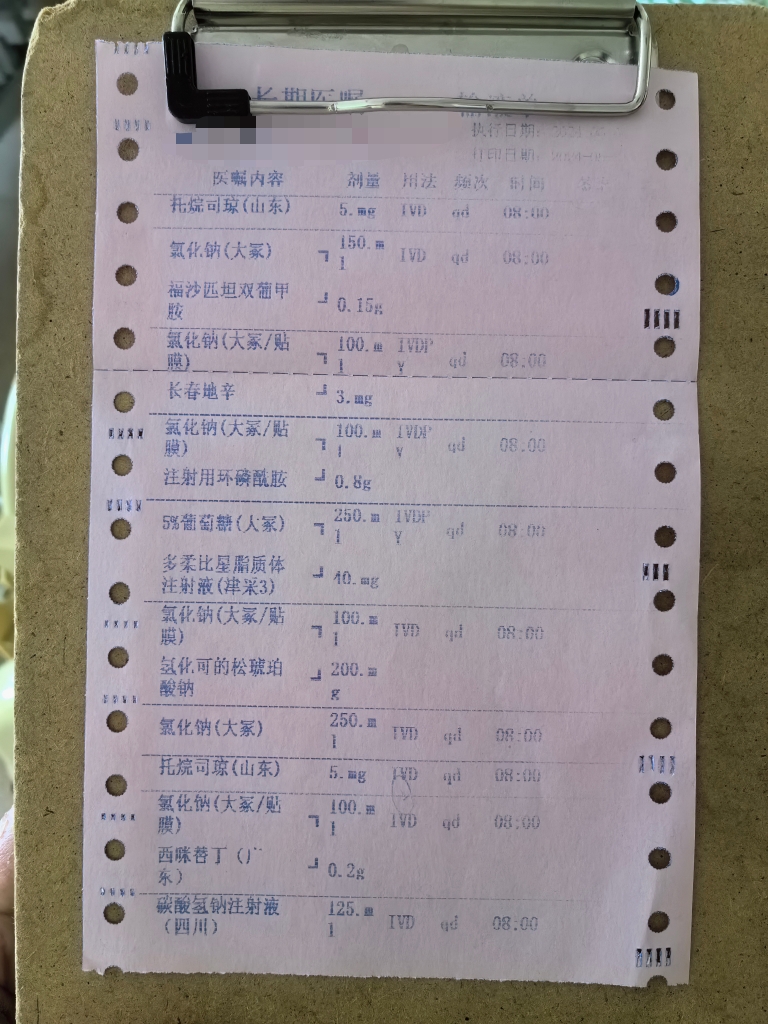 长期医嘱 输液单
执行日期:
打印日期:
医嘱内容 剂量 用法 频次 时间
托烷司琼(山东) 5.mg IVD qd 08:00
氯化钠(大冢) ┓ 150.m IVD qd 08:00
l
福沙匹坦双葡甲 ┛ 0.15g
胺
氯化钠(大冢/贴 ┓ 100.m IVDP qd 08:00
膜) l y
长春地辛 ┛ 3.mg
氯化钠(大冢/贴 ┓ 100.m IVDP qd 08:00
膜) l y
注射用环磷酰胺 ┛ 0.8g
5%葡萄糖(大冢) ┓ 250.m IVDP qd 08:00
l y
多柔比星脂质体 ┛ 40.mg
注射液(津采3)
氯化钠(大冢/贴 ┓ 100.m IVD qd 08:00
膜) l
氢化可的松琥珀 ┛ 200.m
酸钠 g
氯化钠(大冢) 250.m IVD qd 08:00
l
托烷司琼(山东) 5.mg IVD qd 08:00
氯化钠(大冢/贴 ┓ 100.m IVD qd 08:00
膜) l
西咪替丁（广 ┛ 0.2g
东）
碳酸氢钠注射液 125.m IVD qd 08:00
（四川） l